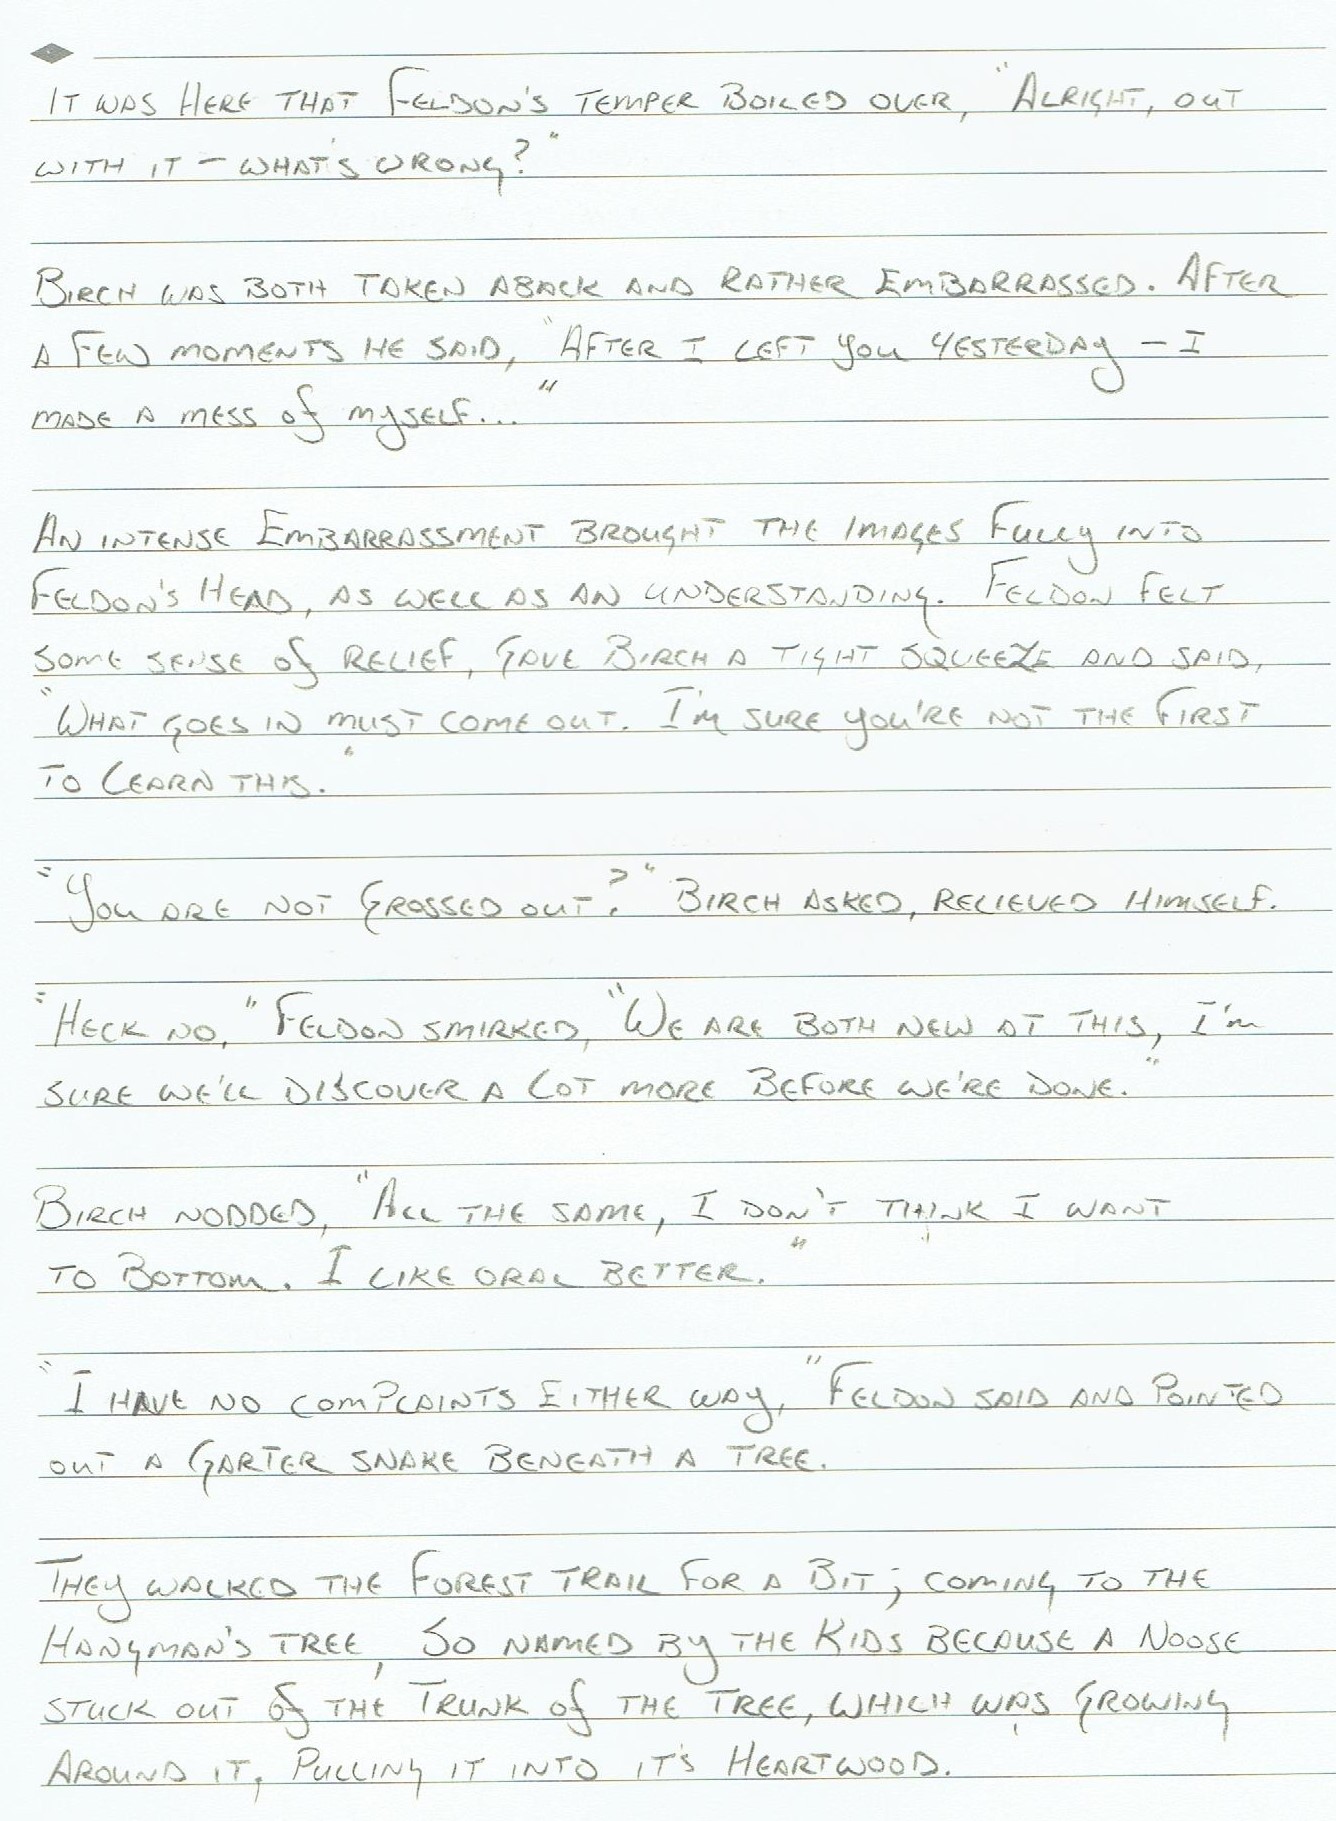 It was Here that Feldon's temper Boiled over, "Alright, out
with it – what's wrong?"
Birch was Both taken aback and rather Embarrassed. After
a Few moments He said, "After I left you yesterday – I
made a mess of myself..."
An intense Embarrassment Brought the Images Fully into
Feldon's Head, as well as an understanding. Feldon Felt
some sense of relief, Gave Birch a tight squeeze and said,
"What goes in must come out. I'm sure you're not the First
to Learn this."
"You are not Grossed out?" Birch asked, relieved Himself.
"Heck no," Feldon smirked, "We are Both new at this, I'm
sure we'll Discover a Lot more Before we're Done."
Birch nodded, "All the same, I don't think I want
to Bottom. I like oral Better."
"I Have no complaints Either way," Feldon said and Pointed
out a Garter snake Beneath a tree.
They walked the Forest trail For a Bit; coming to the
Hangman's tree, So named By the Kids Because a Noose
stuck out of the Trunk of the Tree, which was Growing
Around it, Pulling it into it's Heartwood.